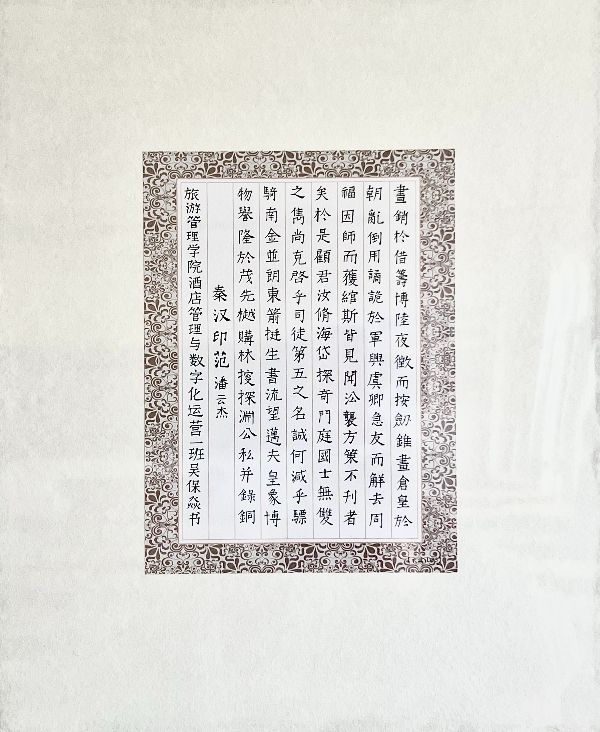 晝銷於借籌博陸夜徹而按劔錐畫倉皇於
朝亂倒用譎詭於軍興虞卿急友而解去同
福因師而獲綰斯皆見聞沿襲方策不刊者
矣於是顧君汝脩海岱探奇門庭國士無雙
之雋尚克啓乎司徒第五之名誠何減乎驃
騎南金並朗東箭挺生書流望邁夫皇象博
物譽隆於茂先樾購林搜探淵公私并錄銅
秦汉印范 潘云杰
旅游管理学院酒店管理与数字化运营二班吴保焱书